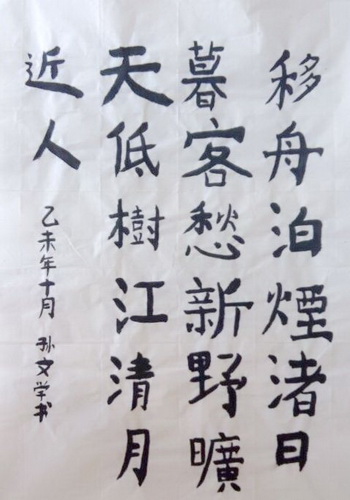 移舟泊煙渚日
暮客愁新野曠
天低樹江清月
近人
乙未年十月 孙文学书